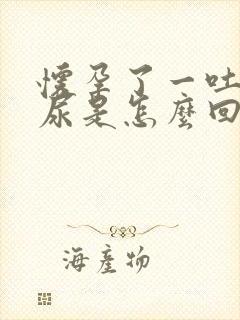 懷孕了一吐
尿是怎麼回
海產物